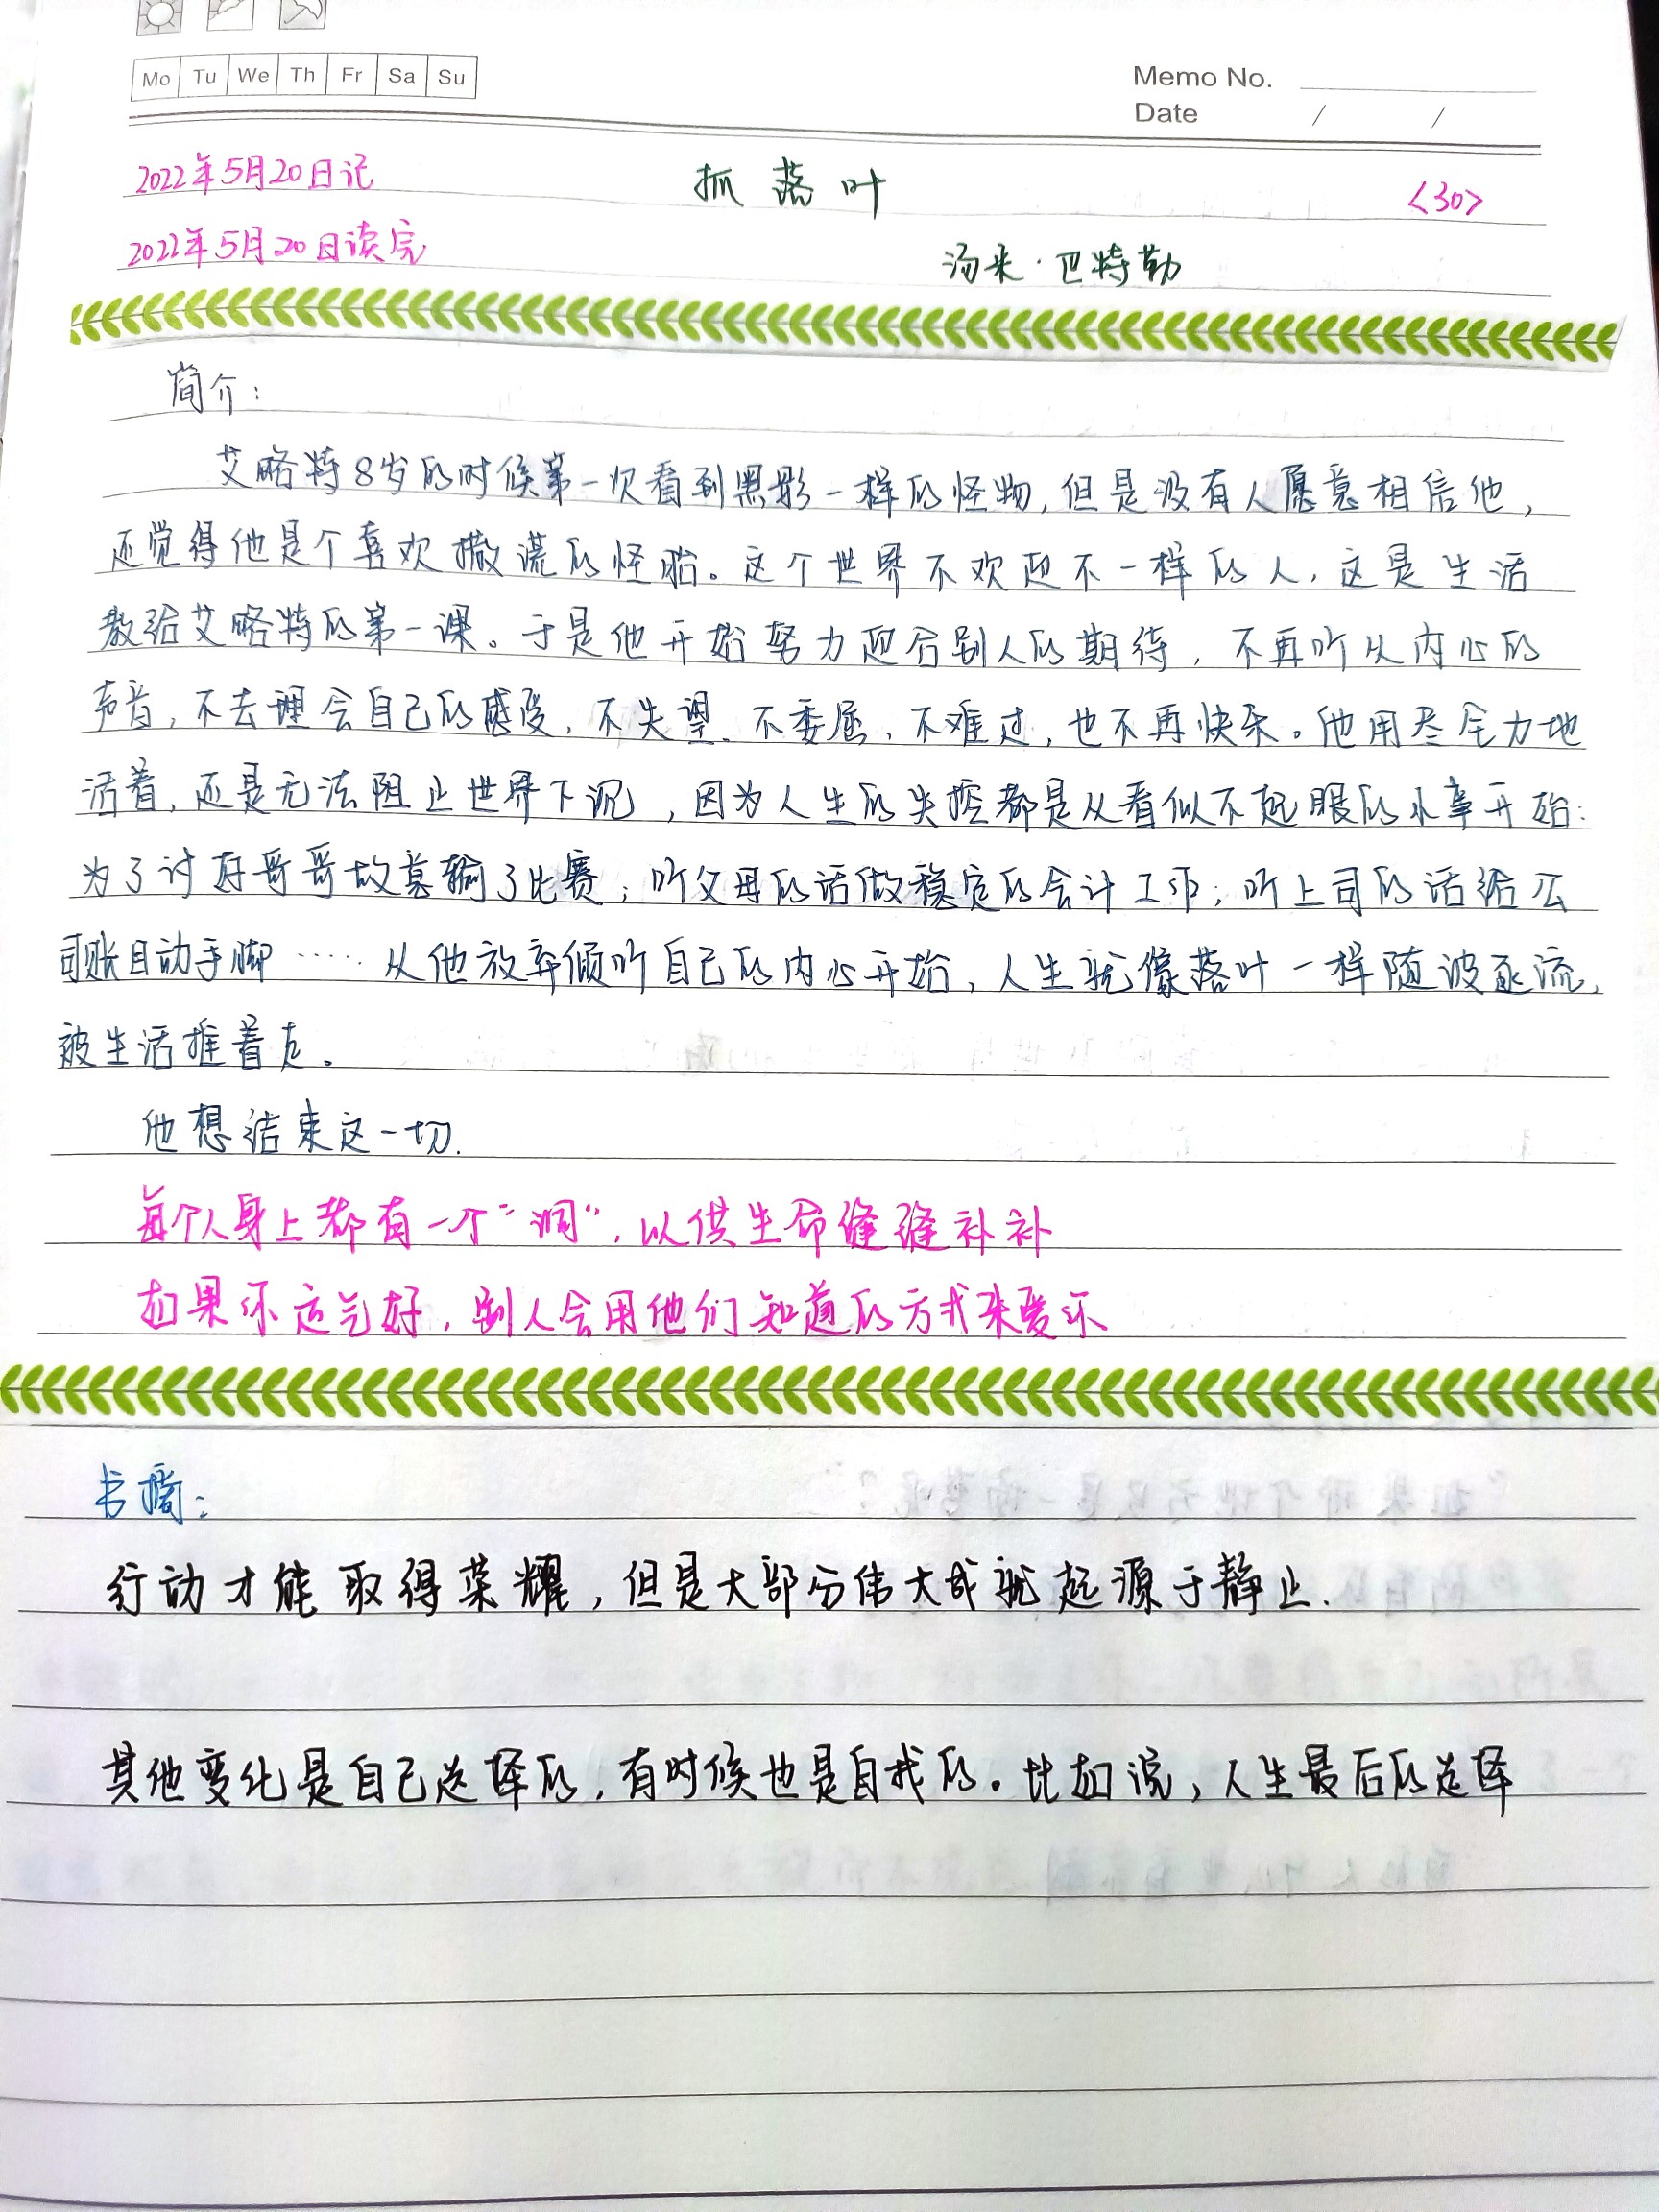 Mo Tu We Th Fr Sa Su
Memo No.
Date / /
2022年5月20日记 抓落叶 <30>
2022年5月20日读完 汤米·巴特勒
简介：
艾略特8岁的时候第一次看到黑影一样的怪物，但是没有人愿意相信他，
还觉得他是个喜欢撒谎的怪胎。这个世界不欢迎不一样的人，这是生活
教给艾略特的第一课。于是他开始努力迎合别人的期待，不再听从内心的
声音，不去理会自己的感受，不失望、不委屈，不难过，也不再快乐。他用尽全力地
活着，还是无法阻止世界下沉，因为人生的失控都是从看似不起眼的小事开始：
为了讨好哥哥故意输了比赛；听父母的话做稳定的会计工作；听上司的话给公
司账目动手脚……从他放弃倾听自己的内心开始，人生就像落叶一样随波逐流，
被生活推着走。
他想结束这一切.
每个人身上都有一个“洞”，以供生命缝缝补补
如果你运气好，别人会用他们知道的方式来爱你
书摘：
行动才能取得荣耀，但是大部分伟大成就起源于静止.
其他变化是自己选择的，有时候也是自我的。比如说，人生最后的选择